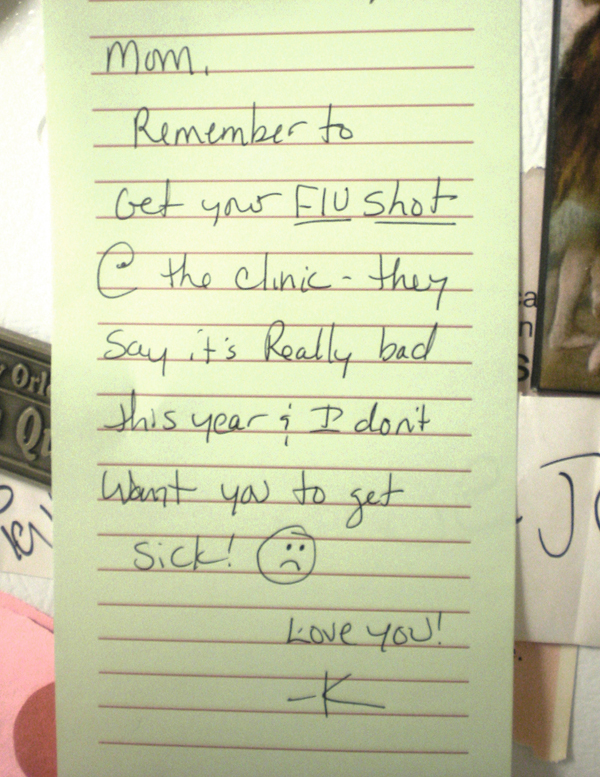 Mom,
Remember to
Get your Flu Shot
@ the clinic - they
Say it's Really bad
this year & I don't
Want you to get
Sick! ☹
Love you!
-K